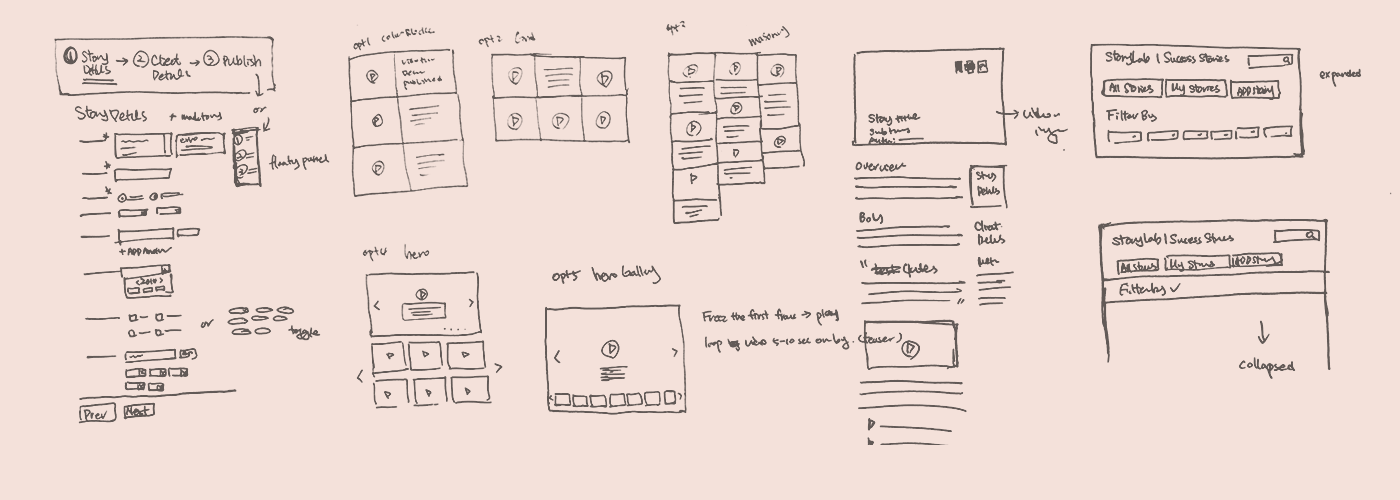 1 Story Details → 2 Client Details → 3 Publish
Story Details
* mandatory
or
floating panel
*
*
*
+ ADD Another
or
toggle
Prev
Next
opt1 color-Blocks
published
opt2 Grid
masonry
opt4 hero
opt5 hero Gallery
Freez the first frame → play
loop video 5-10 sec on bg. (teaser)
Story title
→ video
overview
Story Details
Body
Client Details
" Quotes
"
StoryLab | Sucess Stories
All Stories
My Stories
ADD Story
Filter By
expanded
StoryLab | Sucess Stories
All Stories
My Stories
ADD Story
Filter by
collapsed